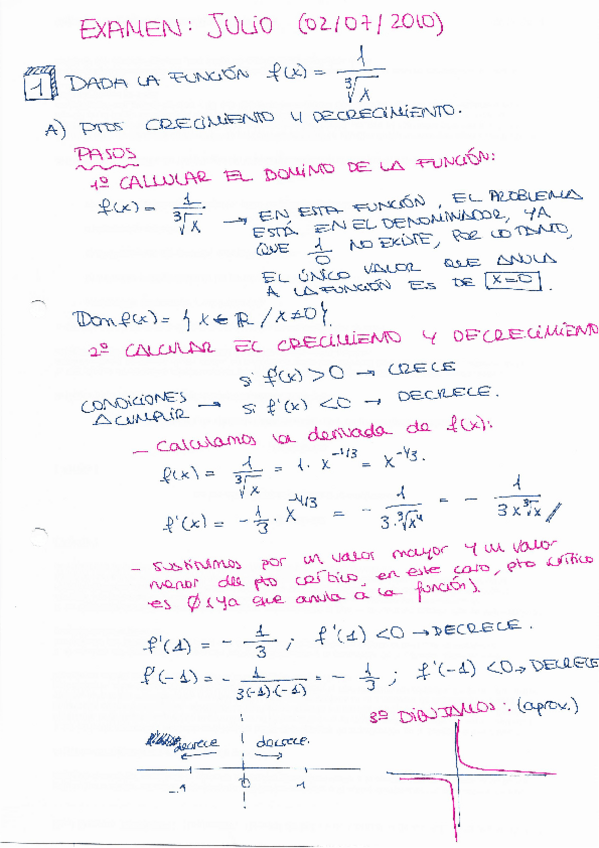 EXAMEN: JULIO (02/07/2010)
1 DADA LA FUNCIÓN f(x) = 1/∛x
A) PTOS CRECIMIENTO Y DECRECIMIENTO.
PASOS
1º CALCULAR EL DOMINIO DE LA FUNCIÓN:
f(x) = 1/∛x → EN ESTA FUNCIÓN, EL PROBLEMA
ESTÁ EN EL DENOMINADOR, YA
QUE 1/0 NO EXISTE, POR LO TANTO,
EL ÚNICO VALOR QUE ANULA
A LA FUNCIÓN ES DE x=0.
Domf(x) = {x ∈ ℝ / x≠0}.
2º CALCULAR EL CRECIMIENTO Y DECRECIMIENTO
si f'(x) > 0 → CRECE
CONDICIONES
A CUMPLIR → si f'(x) < 0 → DECRECE.
- Calculamos la derivada de f(x):
f(x) = 1/∛x = 1. x^-1/3 = x^-1/3.
f'(x) = -1/3 . x^-4/3 = - 1/3.∛x⁴ = - 1/3x∛x //
- sustituimos por un valor mayor y un valor
menor del pto crítico, en este caso, pto crítico
es 0 (ya que anula a la función).
f'(1) = - 1/3 ; f'(1) < 0 → DECRECE.
f'(-1) = - 1/3(-1)·(-1) = - 1/3 ; f'(-1) < 0 → DECRECE
3º DIBUJAMOS: (aprox.)
decrece decrece.
-1 0 1